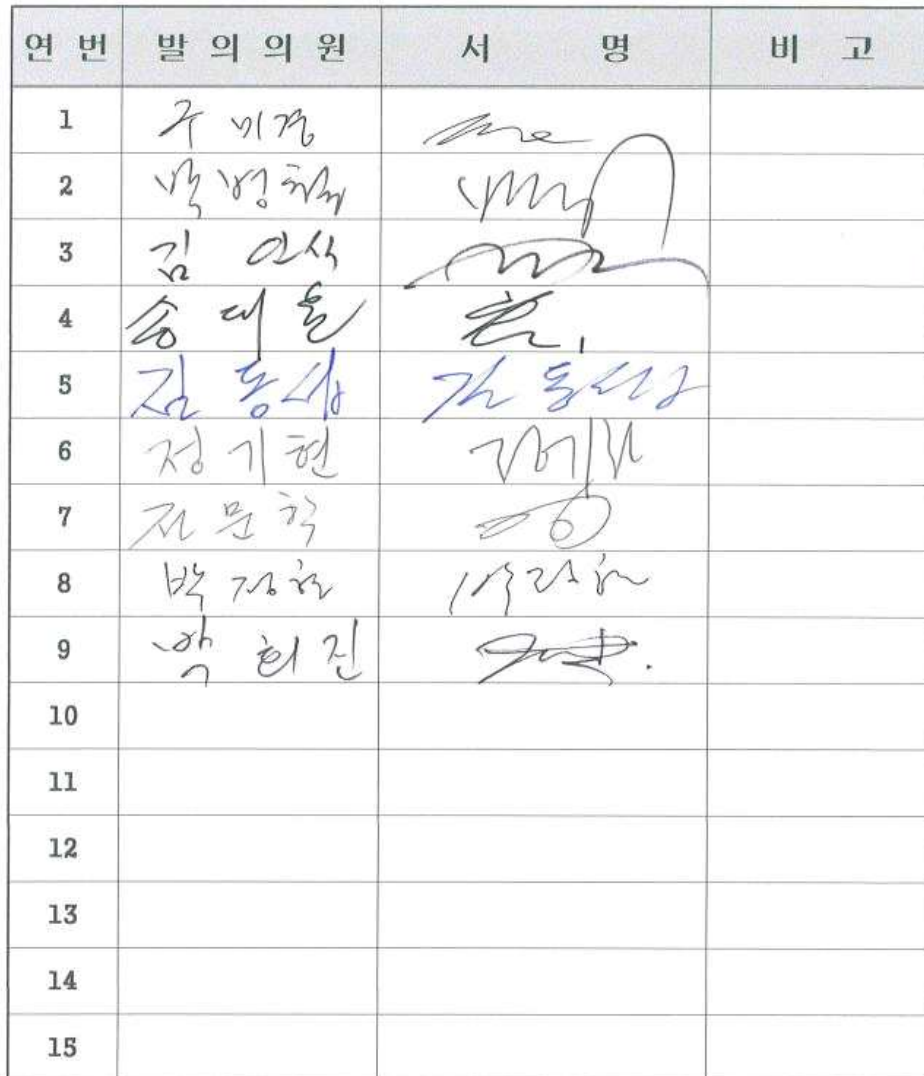 연 번 발 의 의 원 서 명 비 고
1 구 미 경
2 박 병 철
3 김 인 식
4 송 대 윤
5 김 동 섭 김 동 섭
6 정 기 현
7 전 문 학
8 박 정 현
9 박 희 진
10
11
12
13
14
15